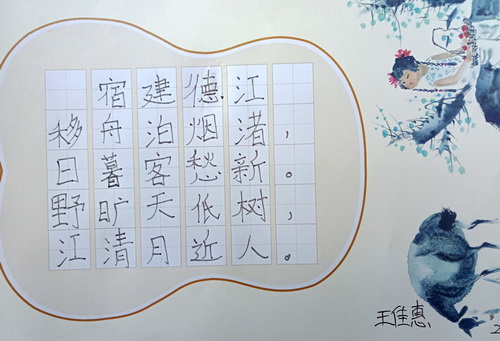 宿建德江
移舟泊烟渚，
日暮客愁新。
野旷天低树，
江清月近人。
王佳惠
2